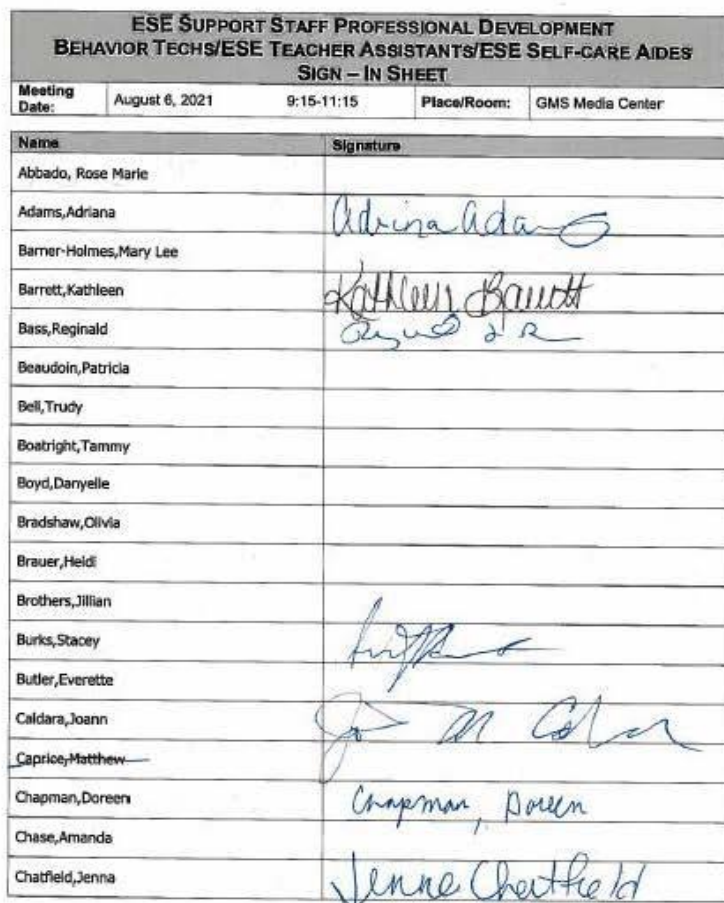 ESE SUPPORT STAFF PROFESSIONAL DEVELOPMENT
BEHAVIOR TECHS/ESE TEACHER ASSISTANTS/ESE SELF-CARE AIDES
SIGN – IN SHEET
Meeting Date: August 6, 2021 9:15-11:15 Place/Room: GMS Media Center
Name Signature
Abbado, Rose Marie
Adams,Adriana Adriana Adams
Barner-Holmes,Mary Lee
Barrett,Kathleen Kathleen Barrett
Bass,Reginald
Beaudoin,Patricia
Bell,Trudy
Boatright,Tammy
Boyd,Danyelle
Bradshaw,Olivia
Brauer,Heidi
Brothers,Jillian
Burks,Stacey
Butler,Everette
Caldara,Joann
Caprice,Matthew
Chapman,Doreen Chapman, Doreen
Chase,Amanda
Chatfield,Jenna Jenna Chatfield